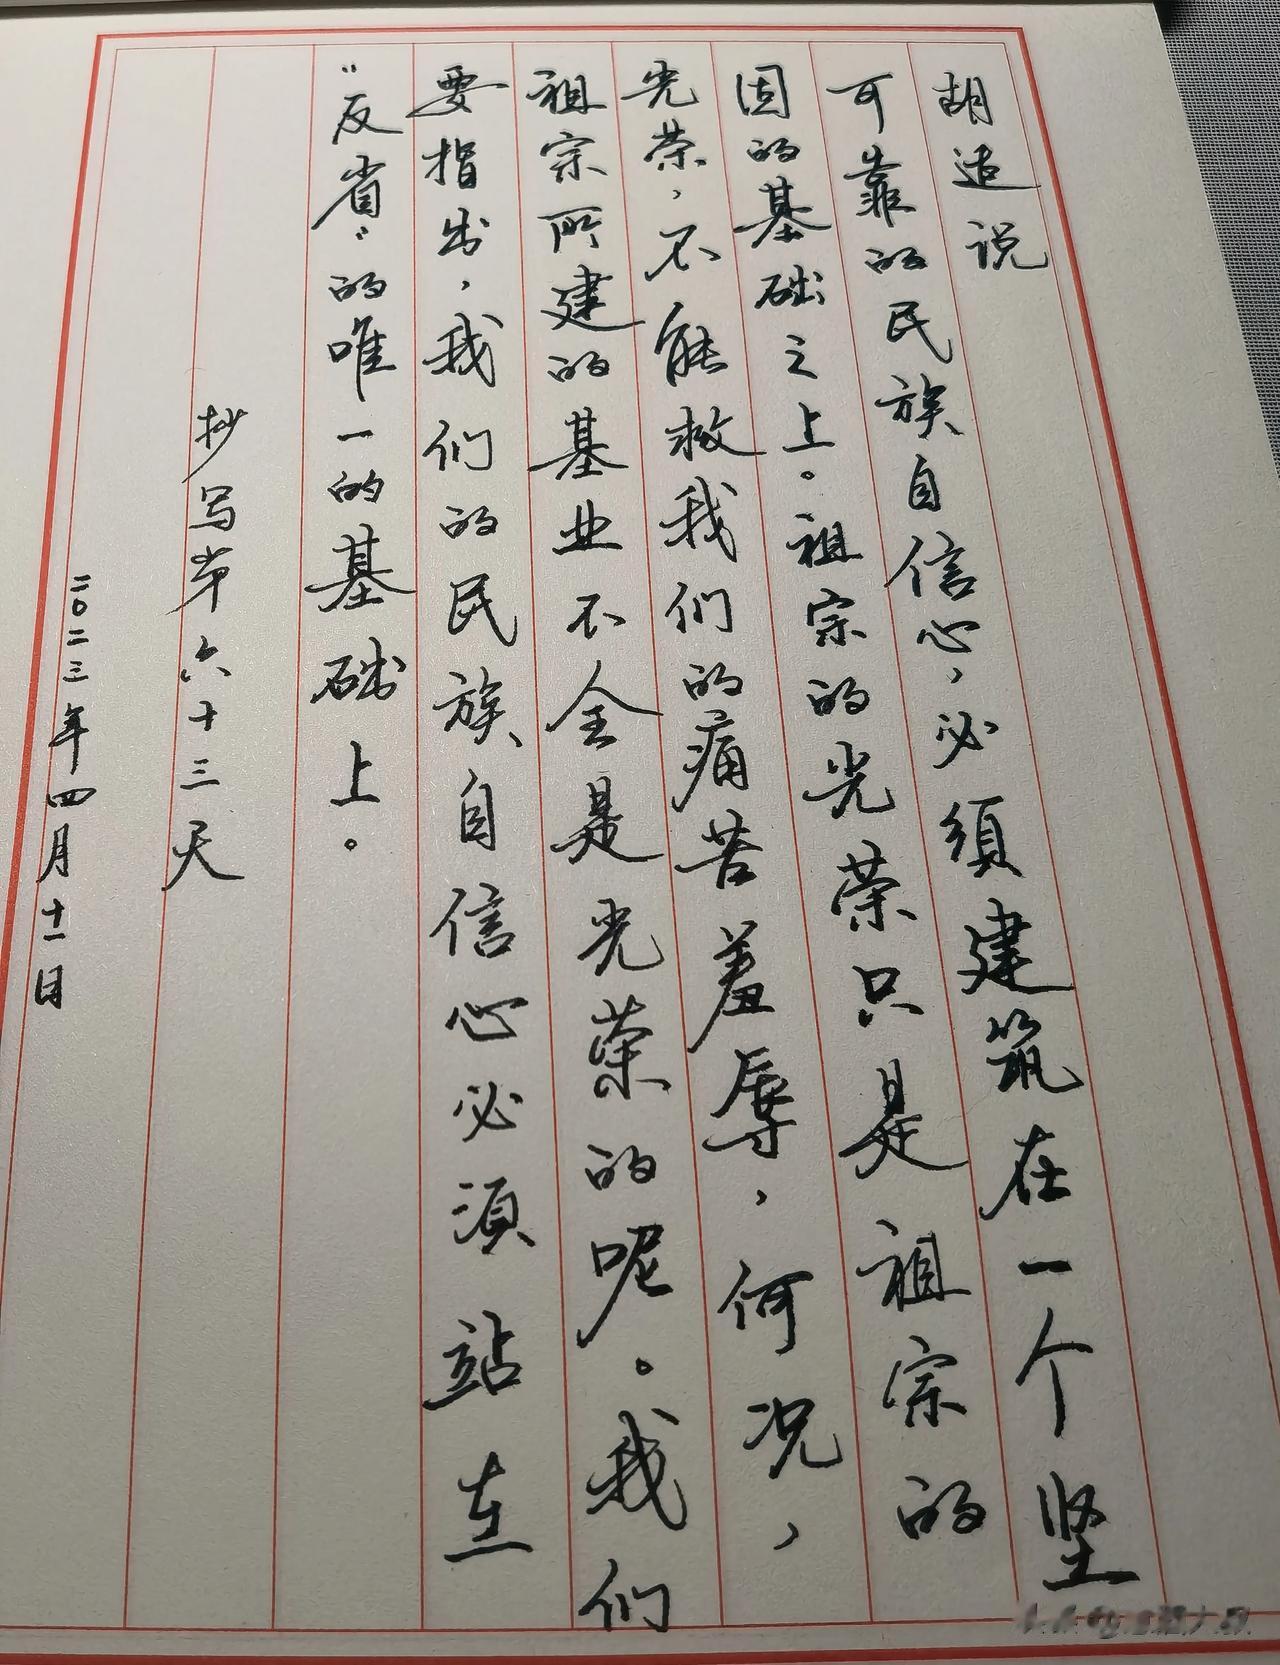 胡适说
可靠的民族自信心，必须建筑在一个坚
固的基础之上。祖宗的光荣只是祖宗的
光荣，不能救我们的痛苦羞辱，何况，
祖宗所建的基业不全是光荣的呢。我们
要指出，我们的民族自信心必须站在
“反省”的唯一的基础上。
抄写第六十三天
二〇二三年四月十一日